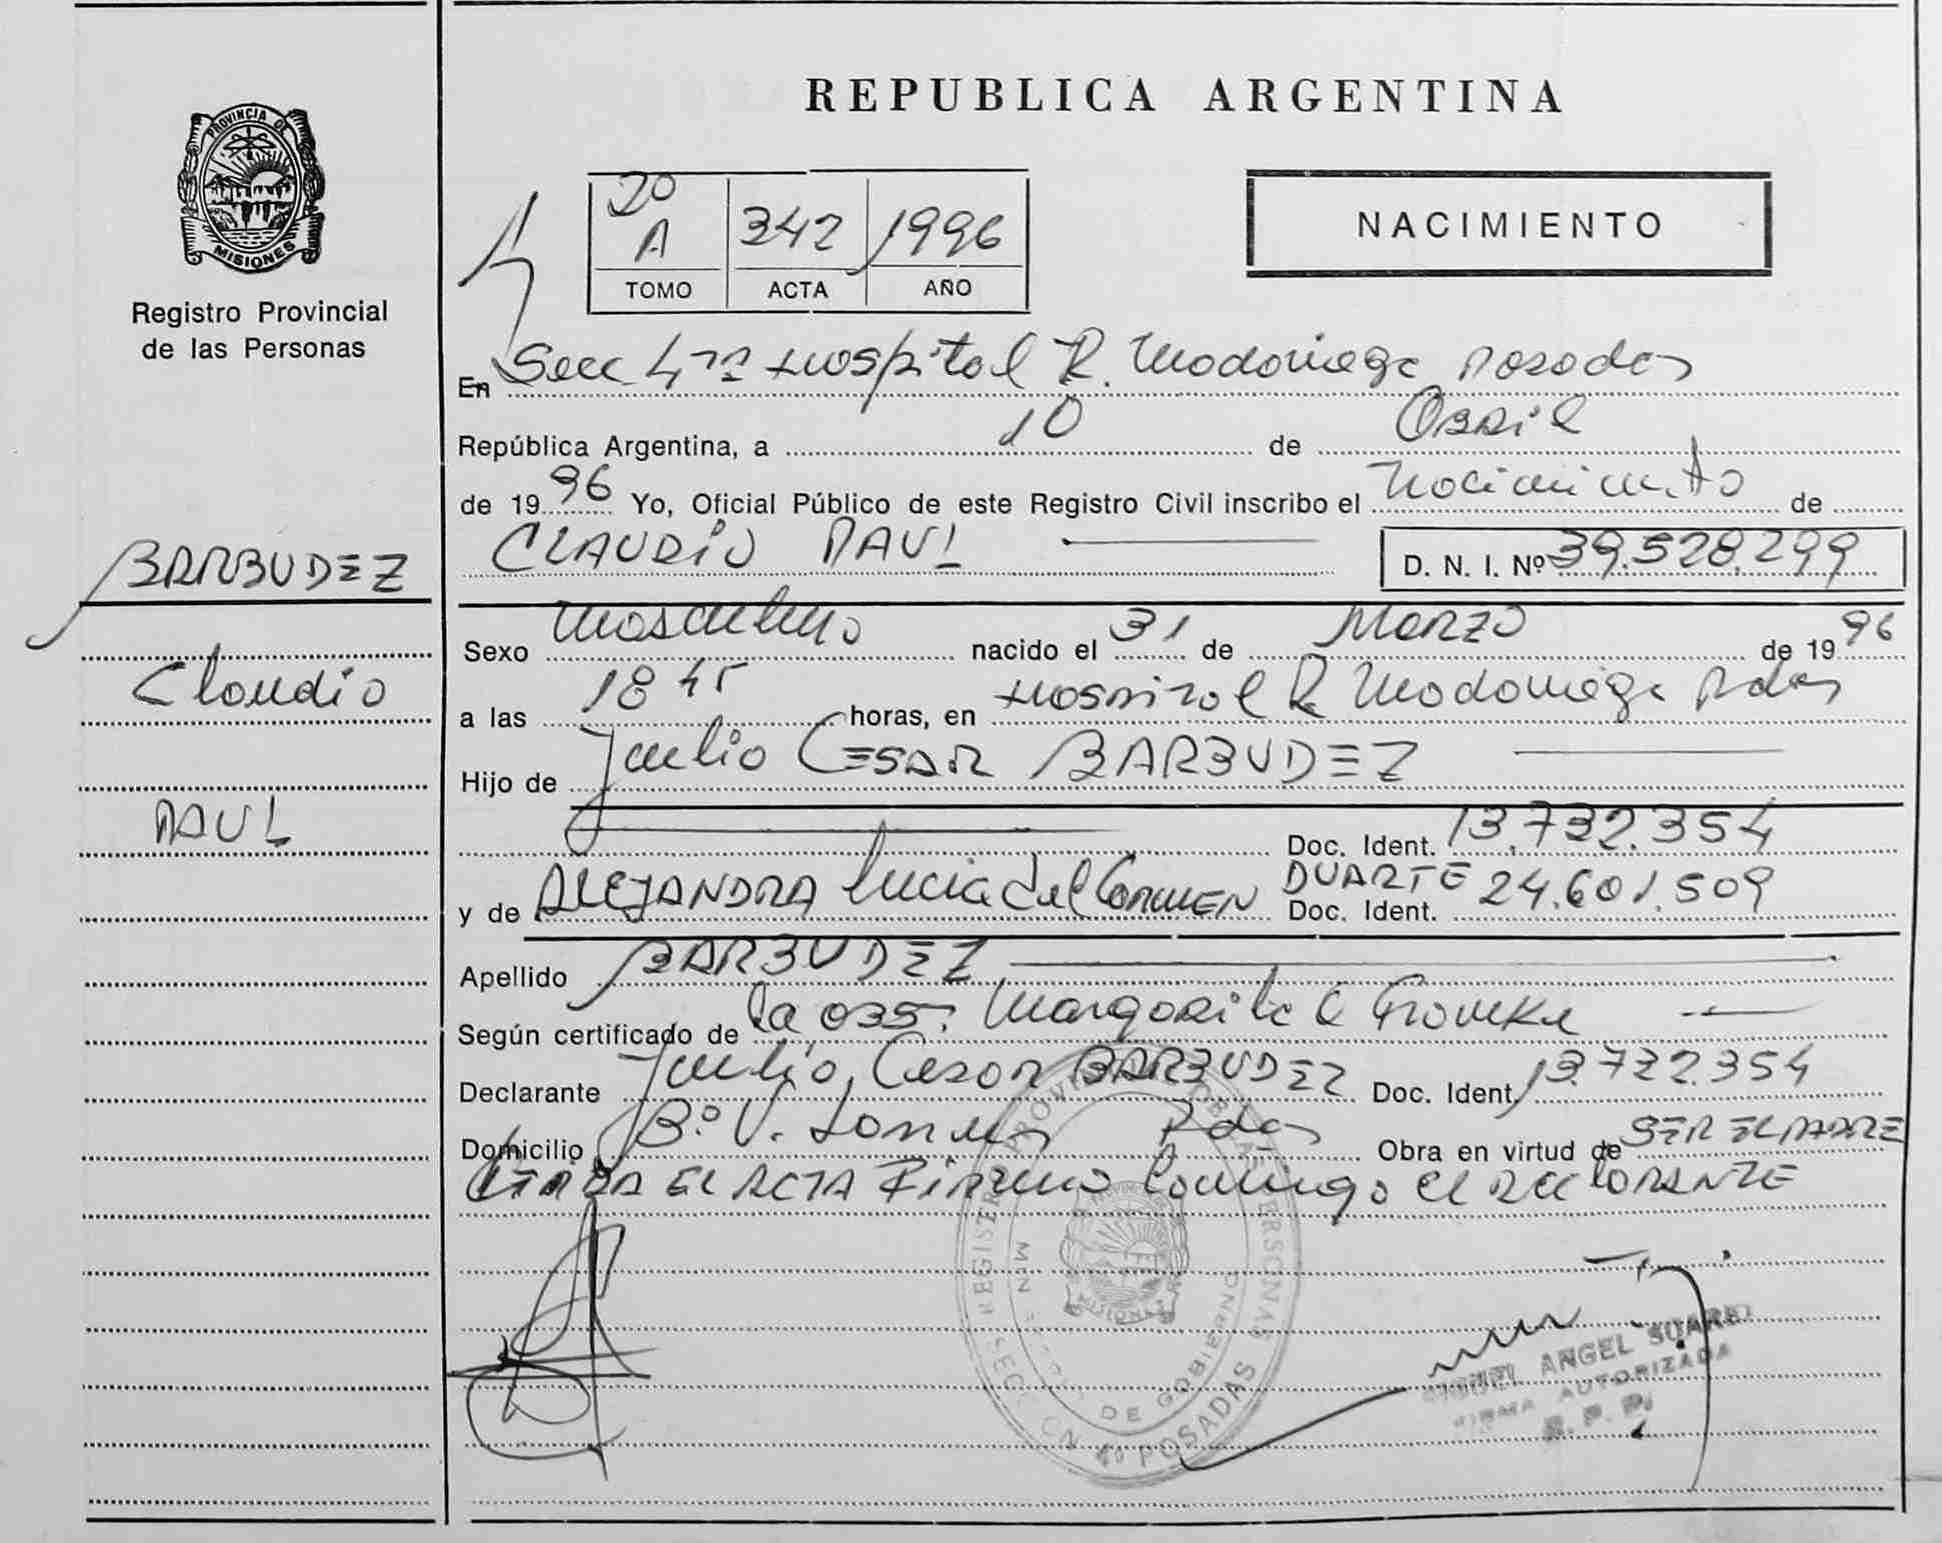 PROVINCIA DE
MISIONES
Registro Provincial
de las Personas
BARBUDEZ
Claudio
PAUL
REPUBLICA ARGENTINA
2º A 342 1996
TOMO ACTA AÑO
NACIMIENTO
En Secc 4ta Hospital R. Madariaga Posadas
República Argentina, a 10 de Abril
de 1996 Yo, Oficial Público de este Registro Civil inscribo el Nacimiento de
CLAUDIO PAUL D. N. I. Nº 39.528.299
Sexo Masculino nacido el 31 de Marzo de 1996
a las 18 45 horas, en Hospital R Madariaga Pdas
Hijo de Julio CESAR BARBUDEZ
Doc. Ident. 13.732.354
y de ALEJANDRA Lucia del CARMEN DUARTE Doc. Ident. 24.601.509
Apellido BARBUDEZ
Según certificado de la obst. Margarita
Declarante Julio Cesar BARBUDEZ Doc. Ident. 13.732.354
Domicilio Bº. V. Pdas Obra en virtud de SER EL PADRE
EL ACTA Firman Conmigo el DECLARANTE
REGISTRO PROVINCIAL DE LAS PERSONAS
MINISTERIO DE GOBIERNO
SECCION 4º POSADAS
MISIONES
MIGUEL ANGEL SUAREZ
FIRMA AUTORIZADA
R. P. P.